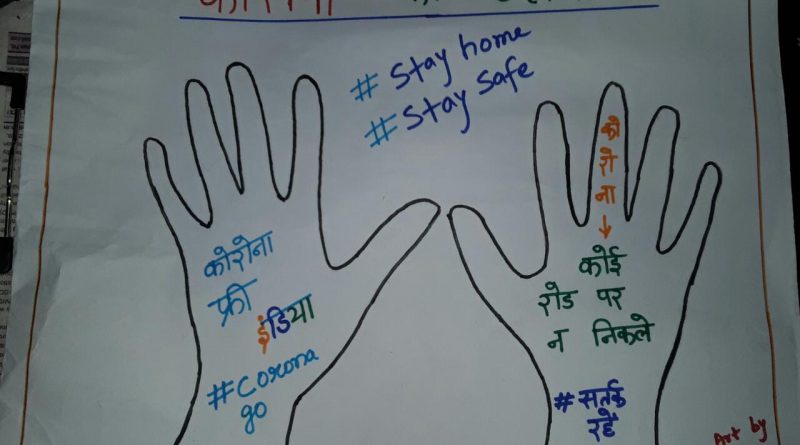 # Stay home
# Stay safe
कोरोना
फ्री
इंडिया
#Corona
go
कोरोना
कोई
रोड पर
न निकले
#सर्तक
रहें
Art by